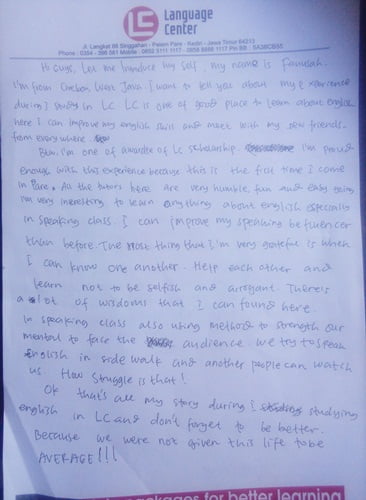 LC Language
Center
Jl. Langkat 88 Singgahan - Pelem Pare - Kediri - Jawa Timur 64213
Hi Guys, Let me Introduce my self, my name is
I'm from Cirebon, West Java. I want to tell you about my experience
during I study in LC LC is one of good place to learn about english
here I can improve my english skill and meet with my new friends
from everywhere.
Btw, I'm one of awardee of LC scholarship. I'm proud
enough with this experience because this is the first time I come
in Pare. All the tutors here are very humble, fun and easy going
I'm very interesting to learn anything about english especially
in speaking class. I can improve my speaking be fluencer
than before. The most thing that I'm very grateful is when
I can know one another. Help each other and
learn not to be selfish and arrogant. There's
a lot of wisdoms that I can found here.
In speaking class also using method to strength our
mental to face the audience we try to speak
English in side walk and another people can watch
us. How struggle is that!
Ok that's all my story during I studying
english in LC and don't forget to be better.
Because we were not given this life to be
AVERAGE!!!
packages for better learning